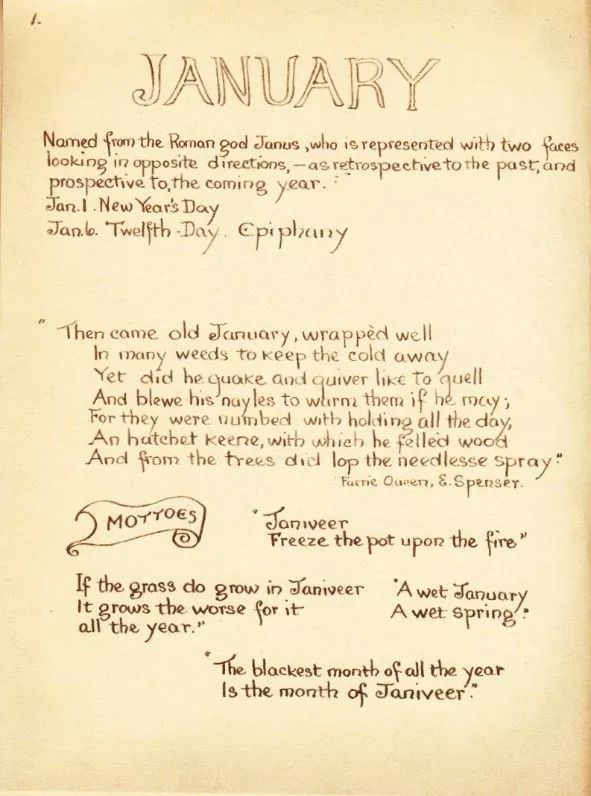 1.
JANUARY
Named from the Roman god Janus, who is represented with two faces
looking in opposite directions, — as retrospective to the past, and
prospective to, the coming year.
Jan.1. New Year's Day
Jan.6. Twelfth-Day. Epiphany
" Then came old January, wrappèd well
In many weeds to keep the cold away
Yet did he quake and quiver like to quell
And blewe his nayles to warm them if he may;
For they were numbed with holding all the day,
An hatchet keene, with which he felled wood
And from the trees did lop the needlesse spray."
Faerie Queen, E. Spenser.
MOTTOES
"Janiveer
Freeze the pot upon the fire"
If the grass do grow in Janiveer
It grows the worse for it
all the year."
"A wet January
A wet spring."
"The blackest month of all the year
Is the month of Janiveer."